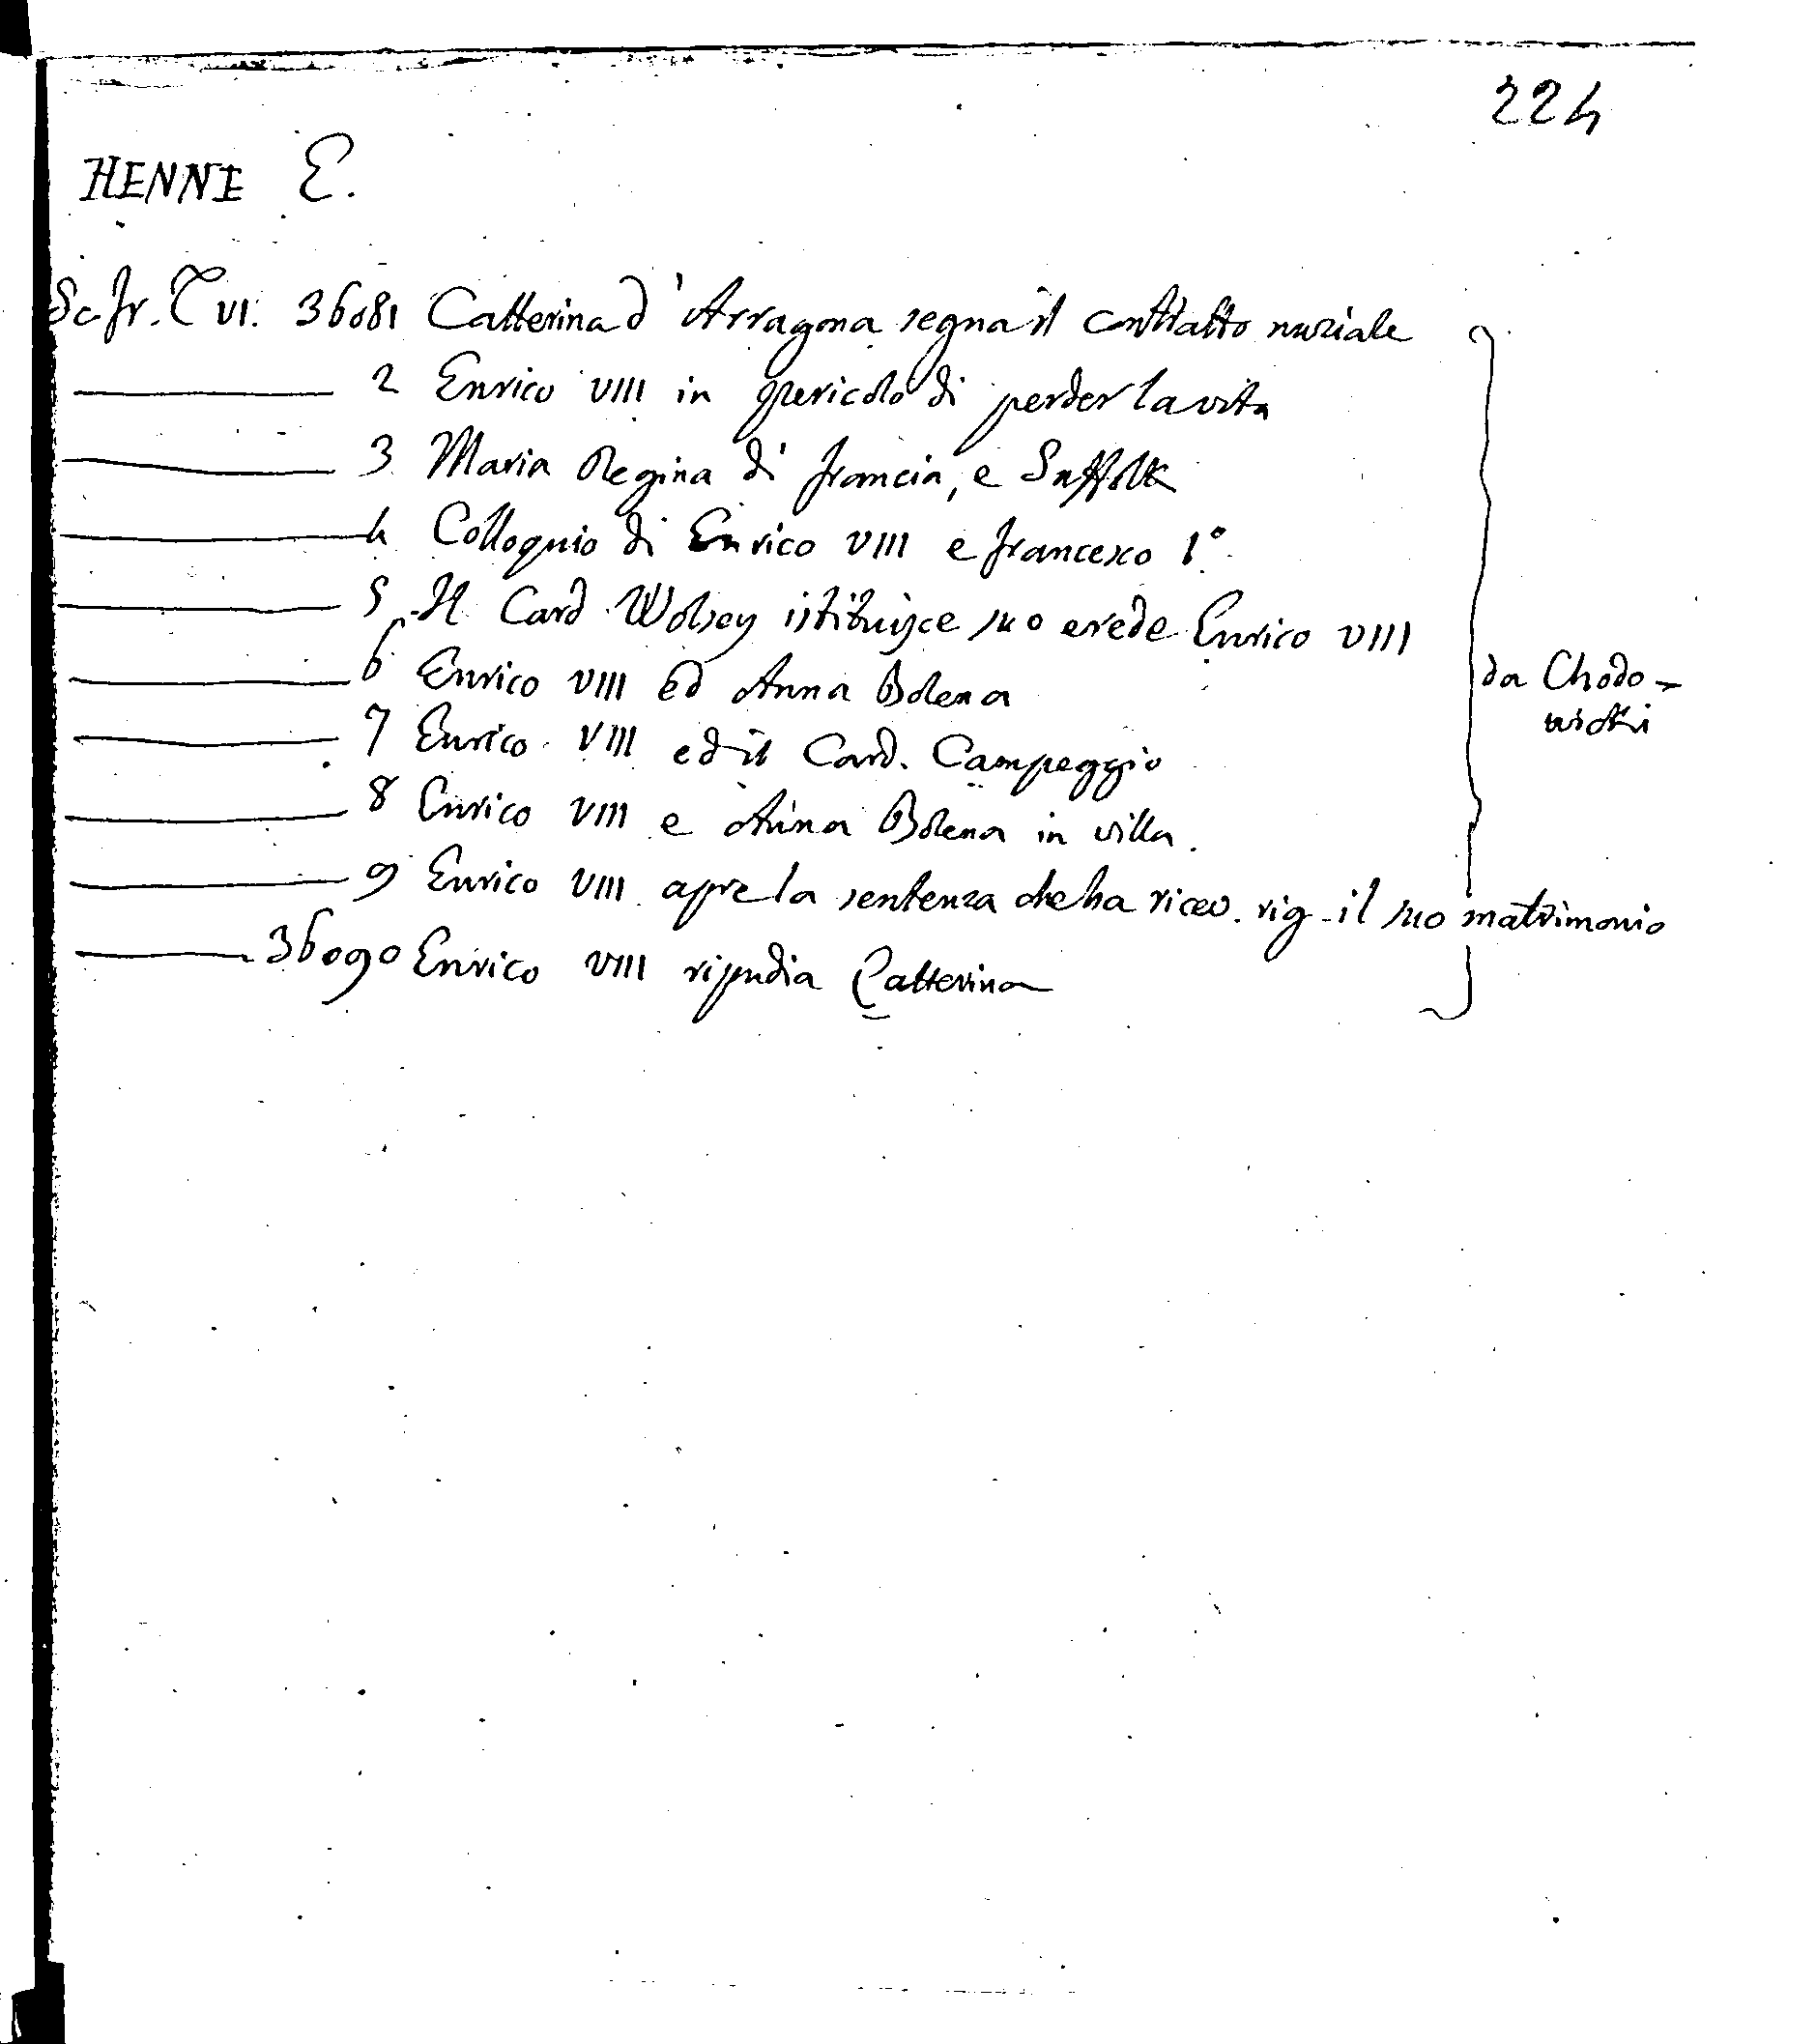 224
HENNE E.
Sc. fr. T VI. 36081 Catterina d'Arragona segna il conttatto nuziale
2 Enrico VIII in pericolo di perder la vita
3 Maria Regina di francia, e Suffolk
4 Colloquio di Enrico VIII e francesco 1°.
5 Il Card. Wolsey istituisce suo erede Enrico VIII
6 Enrico VIII ed Anna Bolena
7 Enrico VIII ed il Card. Campeggio
8 Enrico VIII e Anna Bolena in villa.
9 Enrico VIII apre la sentenza che ha ricev. rig. il suo matrimonio
36090 Enrico VIII ripudia Catterina
da Chodo-
wicki